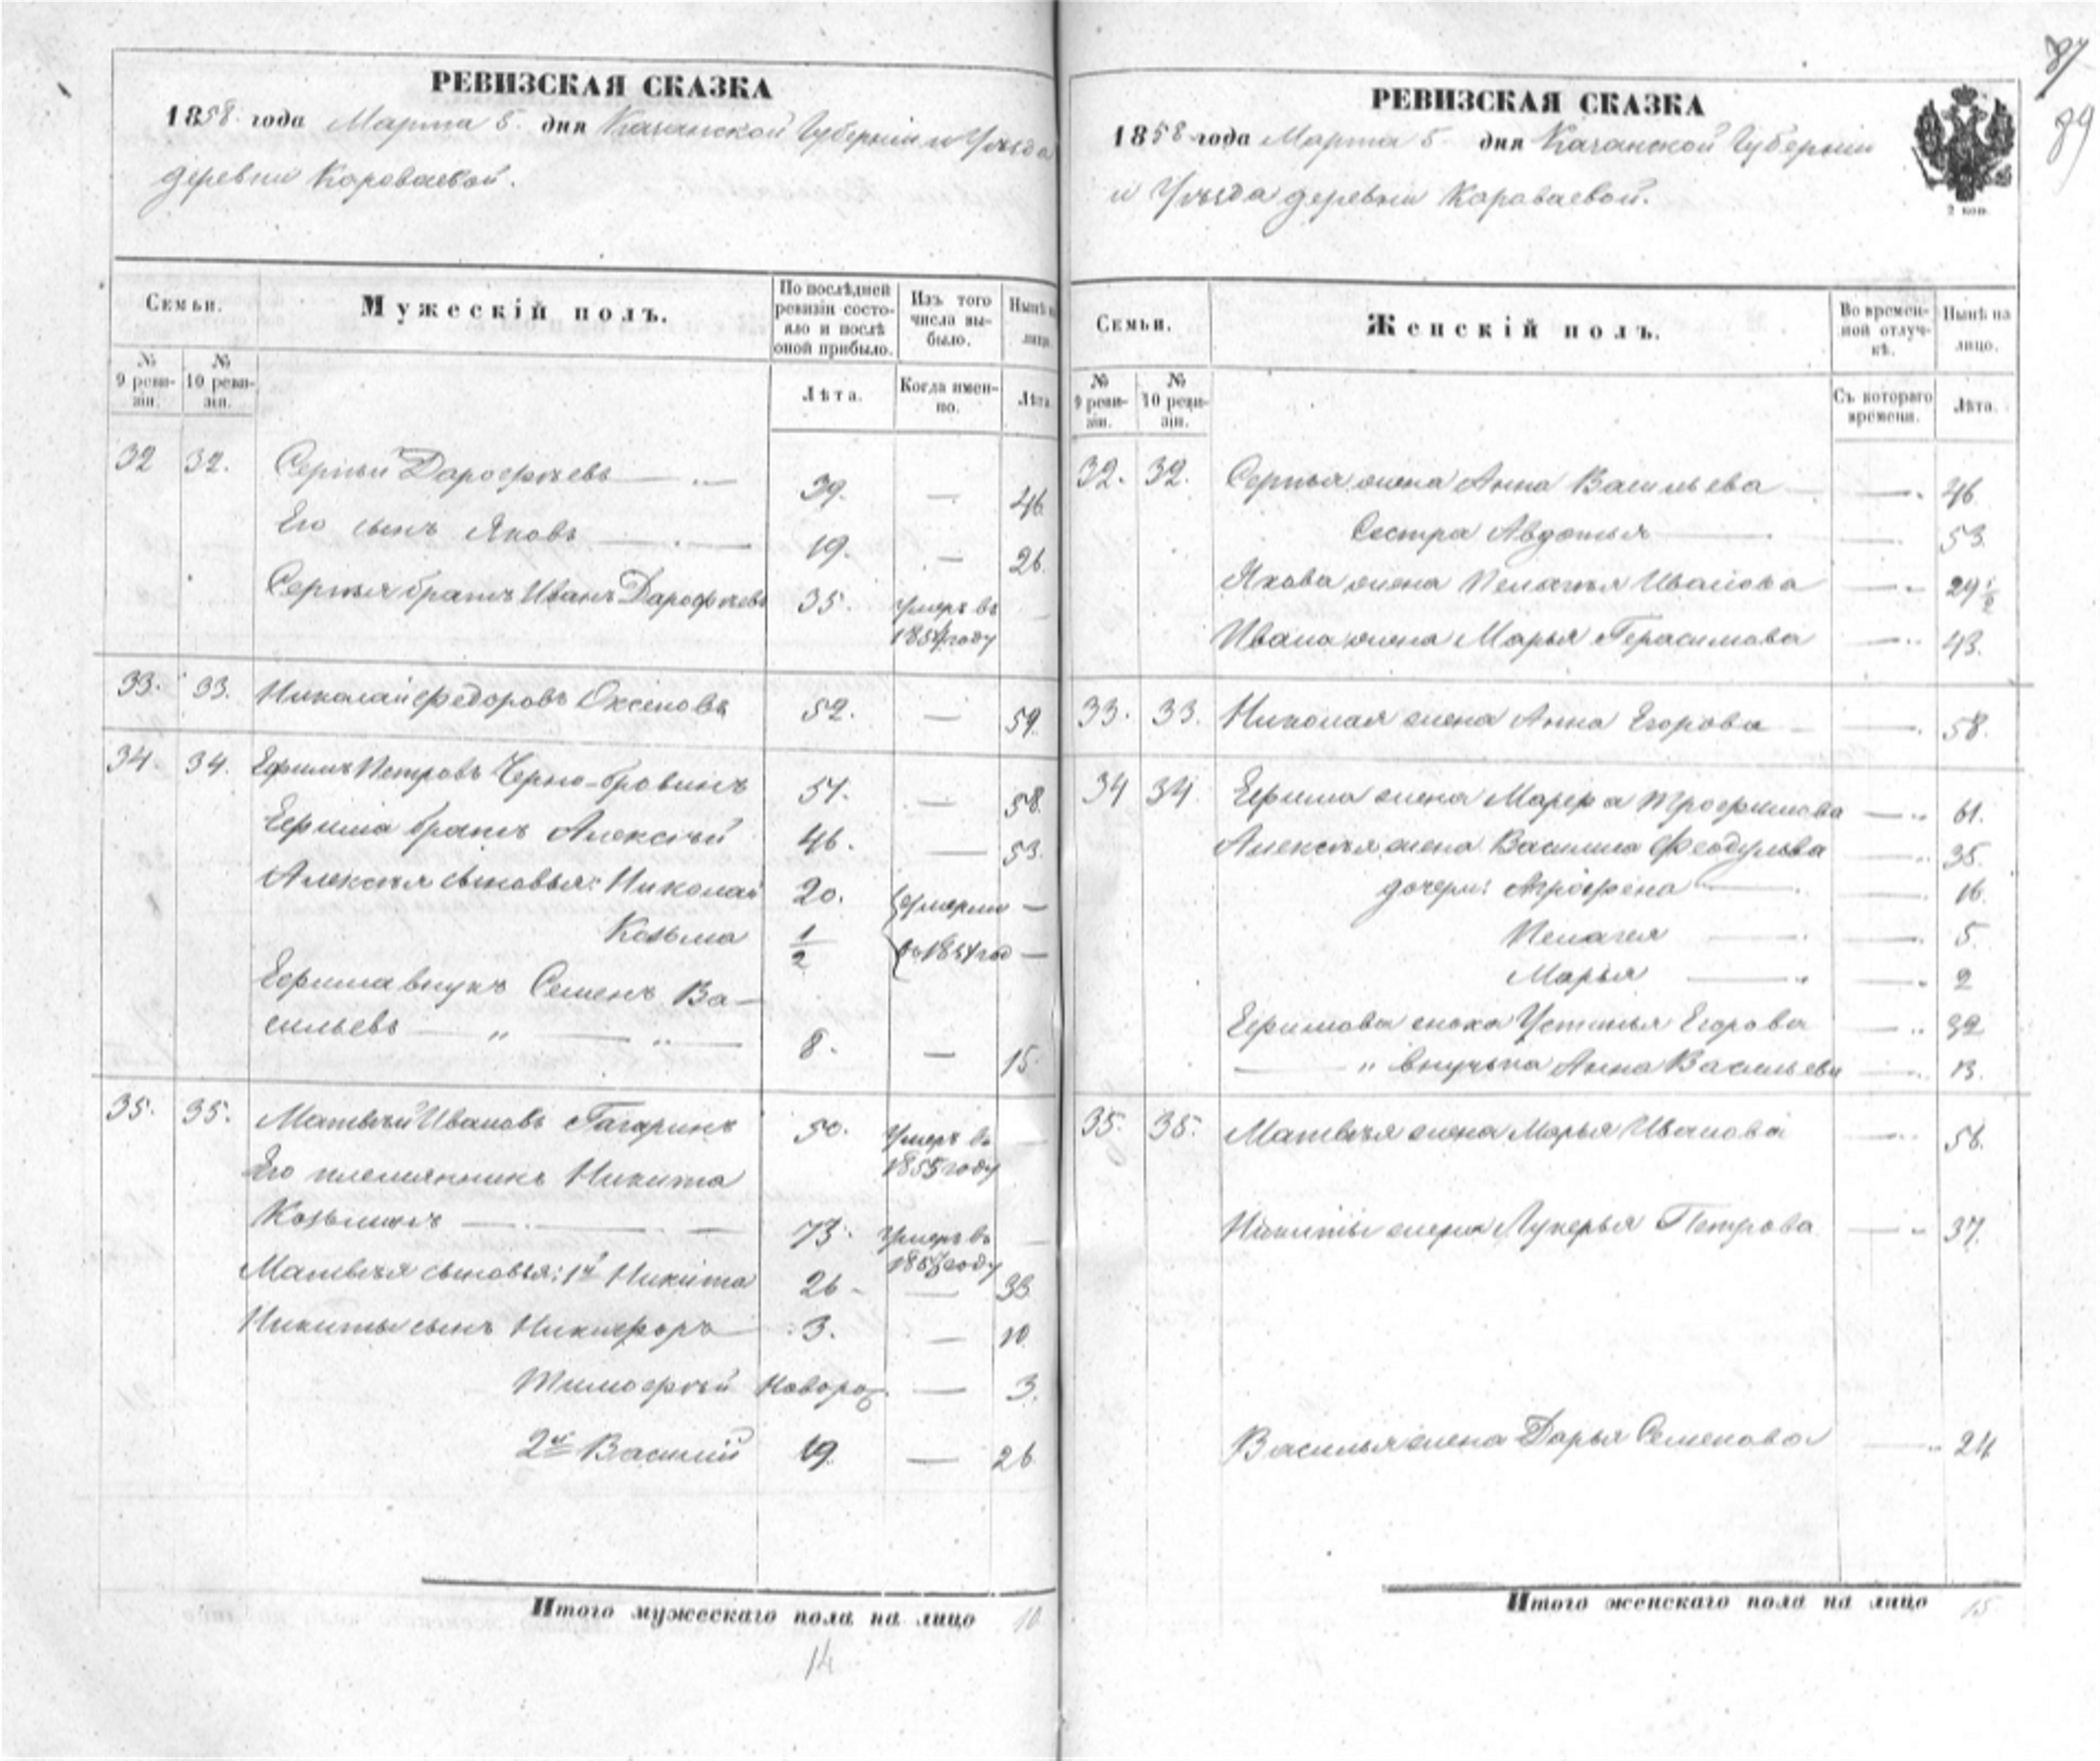 87
89
РЕВИЗСКАЯ СКАЗКА
1858 года Марта 5. дня Казанской Губерніи и Уѣзда
деревни Короваевой.
Семьи.
Мужескій полъ.
По послѣдней ревизіи состояло и послѣ оной прибыло.
Изъ того числа выбыло.
Нынѣ на лицо.
№ 9 ревизіи.
№ 10 ревизіи.
Лѣта.
Когда именно.
Лѣта.
32 32. Сергѣй Дарофѣевъ 39. — 46.
Его сынъ Яковъ 19. — 26.
Сергѣя братъ Иванъ Дарофѣевъ 35. умеръ въ —
1854 году
33. 33. Николай Федоровъ Оксеновъ 52. — 59.
34. 34. Ефимъ Петровъ Черно-бровинъ 51. — 58.
Ефима братъ Алексѣй 46. — 53.
Алексѣя сыновья: Николай 20. умерли —
Козьма 1/2 въ 1854 год —
Ефима внукъ Семенъ Ва-
сильевъ 8. — 15.
35. 35. Матвѣй Ивановъ Гагаринъ 50. Умеръ въ —
1855 году
Его племянникъ Никита
Козьминъ 73. Умеръ въ —
году
Матвѣя сыновья: 1й Никита 26 — 33
Никиты сынъ Никифоръ 3. — 10.
Тимофѣй Новорож. — 3.
2й Василій 19. — 26
Итого мужескаго пола на лицо 10
14
РЕВИЗСКАЯ СКАЗКА
1858 года Марта 5 дня Казанской Губерніи
и Уѣзда деревни Короваевой.
2 коп.
Семьи.
Женскій полъ.
Во временной отлучкѣ.
Нынѣ на лицо.
№ 9 ревизіи.
№ 10 ревизіи.
Съ котораго времени.
Лѣта.
32. 32. Сергѣя жена Анна Васильева — 46.
Сестра Авдотья — 53.
Якова жена Пелагѣя Иванова — 29 1/2
Ивана жена Марья Герасимова — 43.
33. 33. Николая жена Анна Егорова — 58.
34 34. Ефима жена Марфа Трофимова — 61.
Алексѣя жена Василиса Феодулова — 35.
дочери: Агрофена — 16.
Пелагея — 5.
Марья — 2
Ефимова сноха Устинья Егорова — 32
„ внучька Анна Васильева — 13.
35. 35. Матвѣя жена Марья Иванова — 56.
Никиты жена Лукерья Петрова — 37.
Василья жена Дарья Семенова — 24
Итого женскаго пола на лицо 15